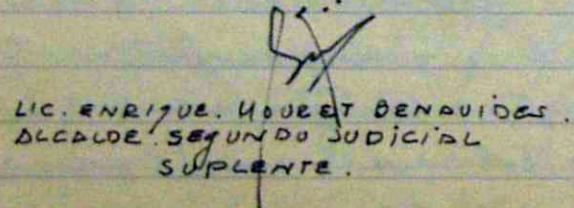 LIC. ENRIQUE. HOUBET BENAVIDES.
ALCALDE. SEGUNDO JUDICIAL
SUPLENTE.